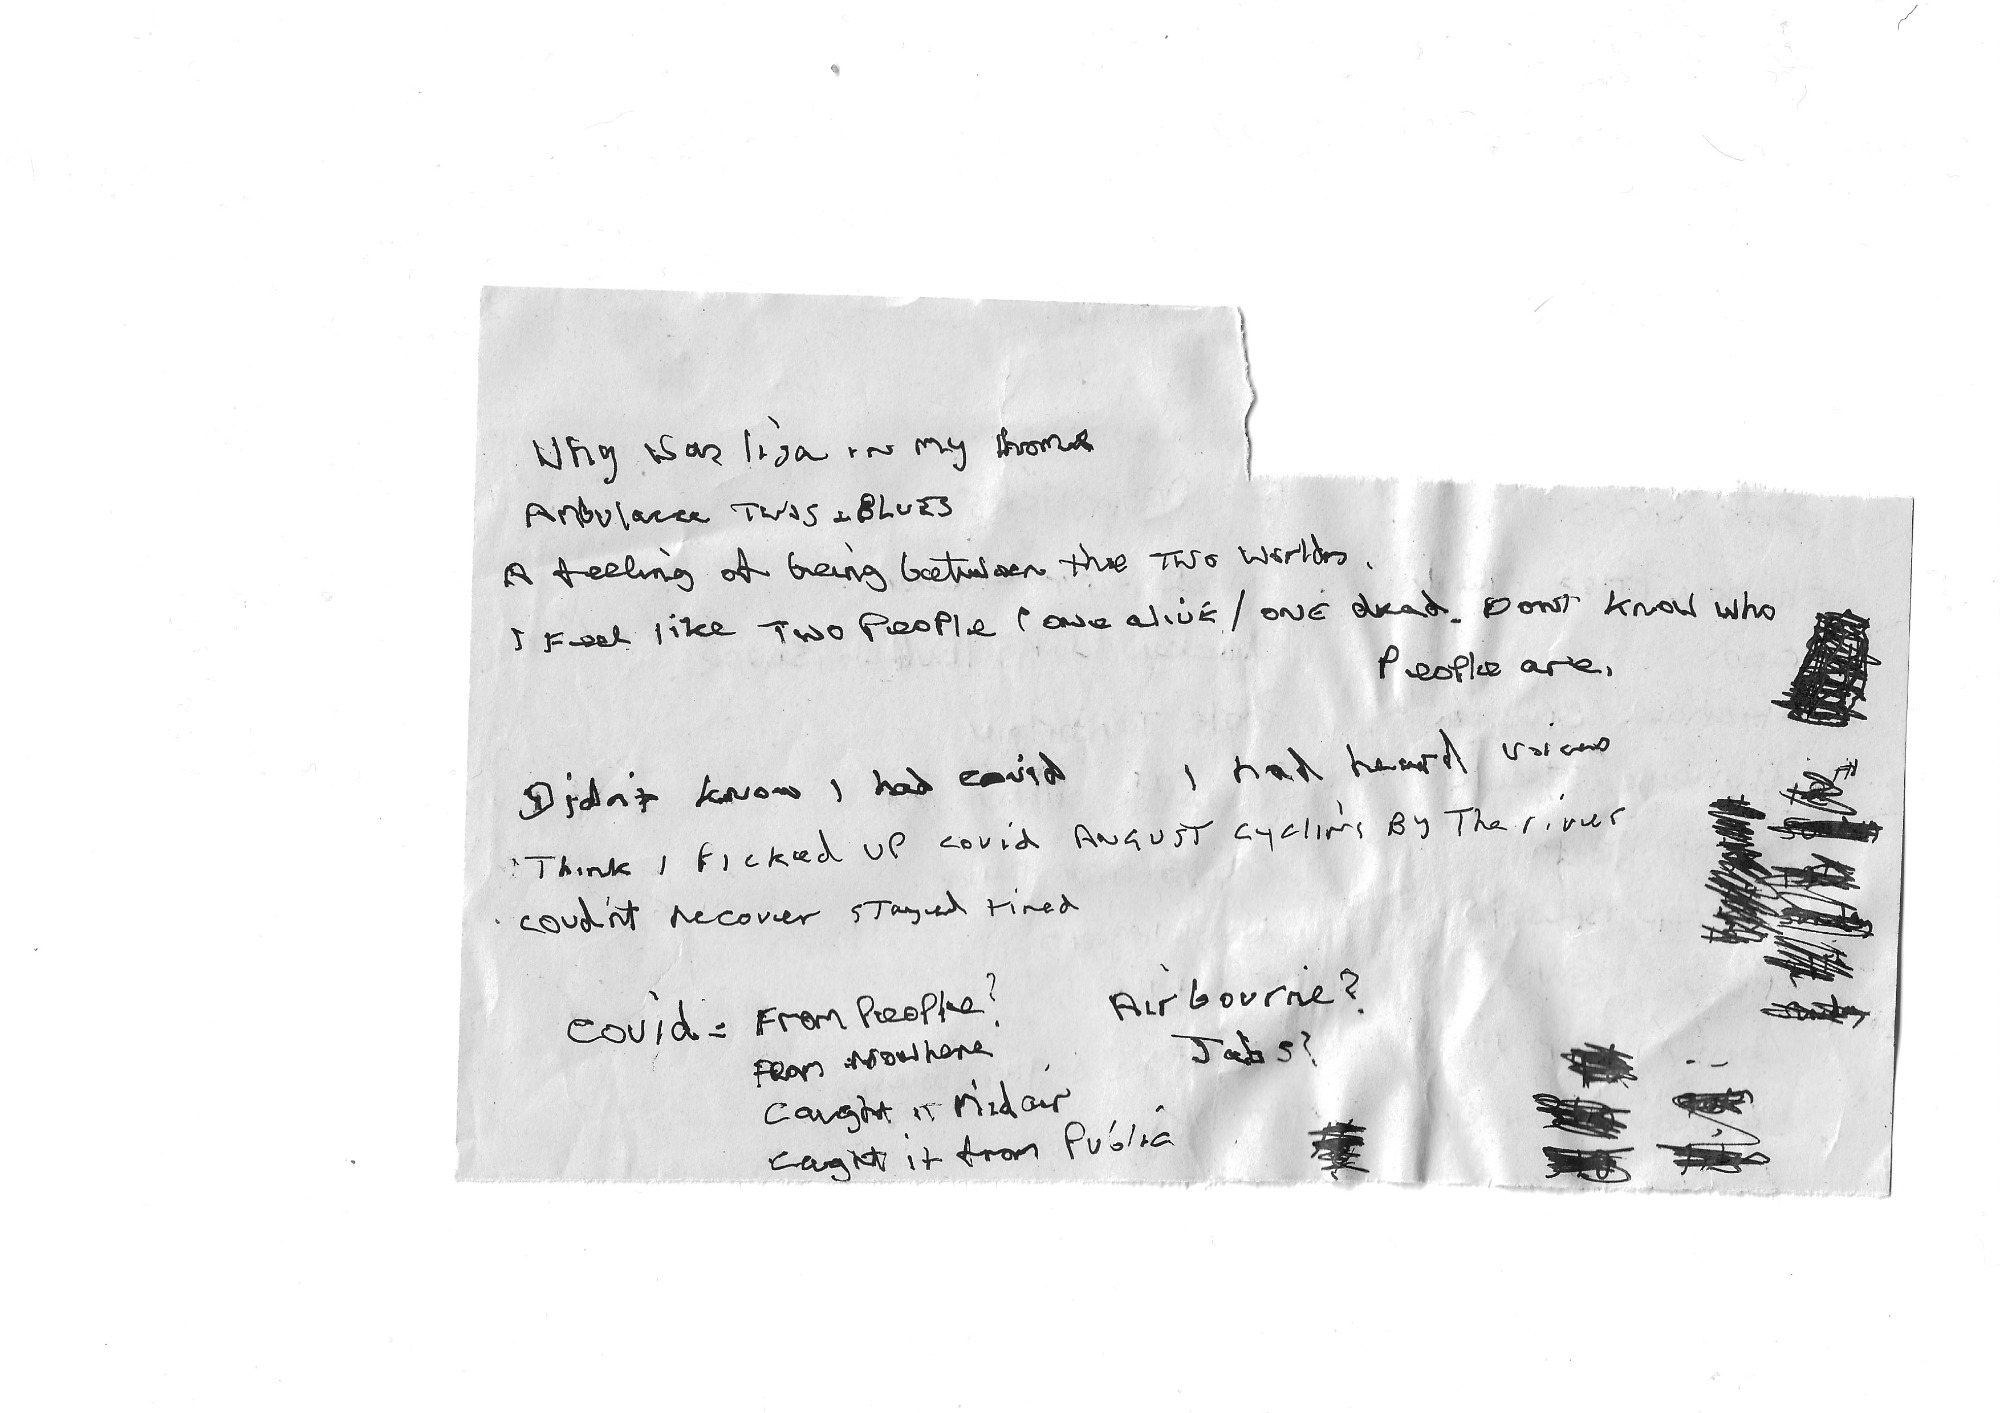 Why was lisa in my home
Ambulance TWOS + BLUES
A feeling of being between the TWO worlds.
I Feel like TWO PeoPLE (one alive / ONE dead. DONT KNOW WHO
People are.
Didn't know I had covid I had heard voices
Think I Picked UP covid AUGUST cycling By The river
coudn't recover stayed tired
Covid = From People? Airbourne?
From nowhere Jabs?
Caught it Midair
caught it from Public